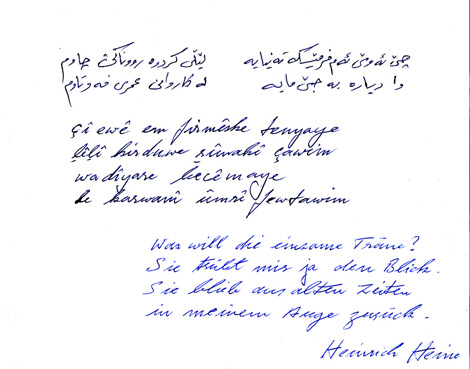 چی ئەوێ ئەم فرمێسکە تەنیایە لێڵی کردوە رووناکی چاوم
وا دیارە بە جێ مایە لە کاروانی عمری فەوتاوم
çî ewê em firmêske tenyaye
lêlî kirduwe rûwakî çawim
wa dîyare becêmaye
le karwanî ûmrî fewtawim
Was will die einsame Träne?
Sie trübt mir ja den Blick.
Sie blieb aus alten Zeiten
in meinem Auge zurück.
Heinrich Heine